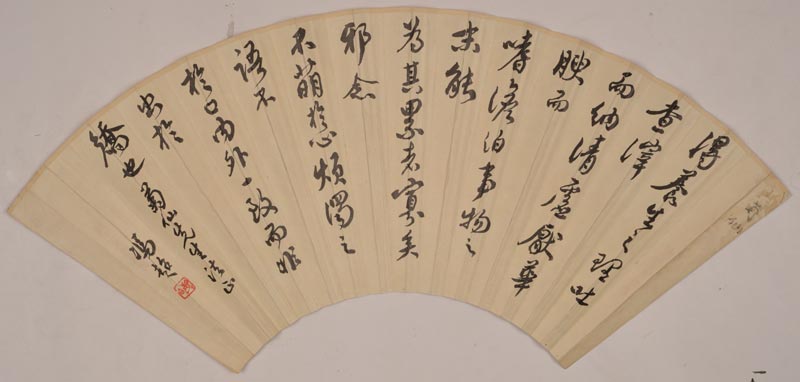 得養生之理吐
查滓
而納清虛厭華
腴而
嗜澹泊事物之
來能
為其累者寡矣
邪念
不萌於心煩濁之
語不
於口內外一致而非
出於
矯也 菊仙先生法正
馮